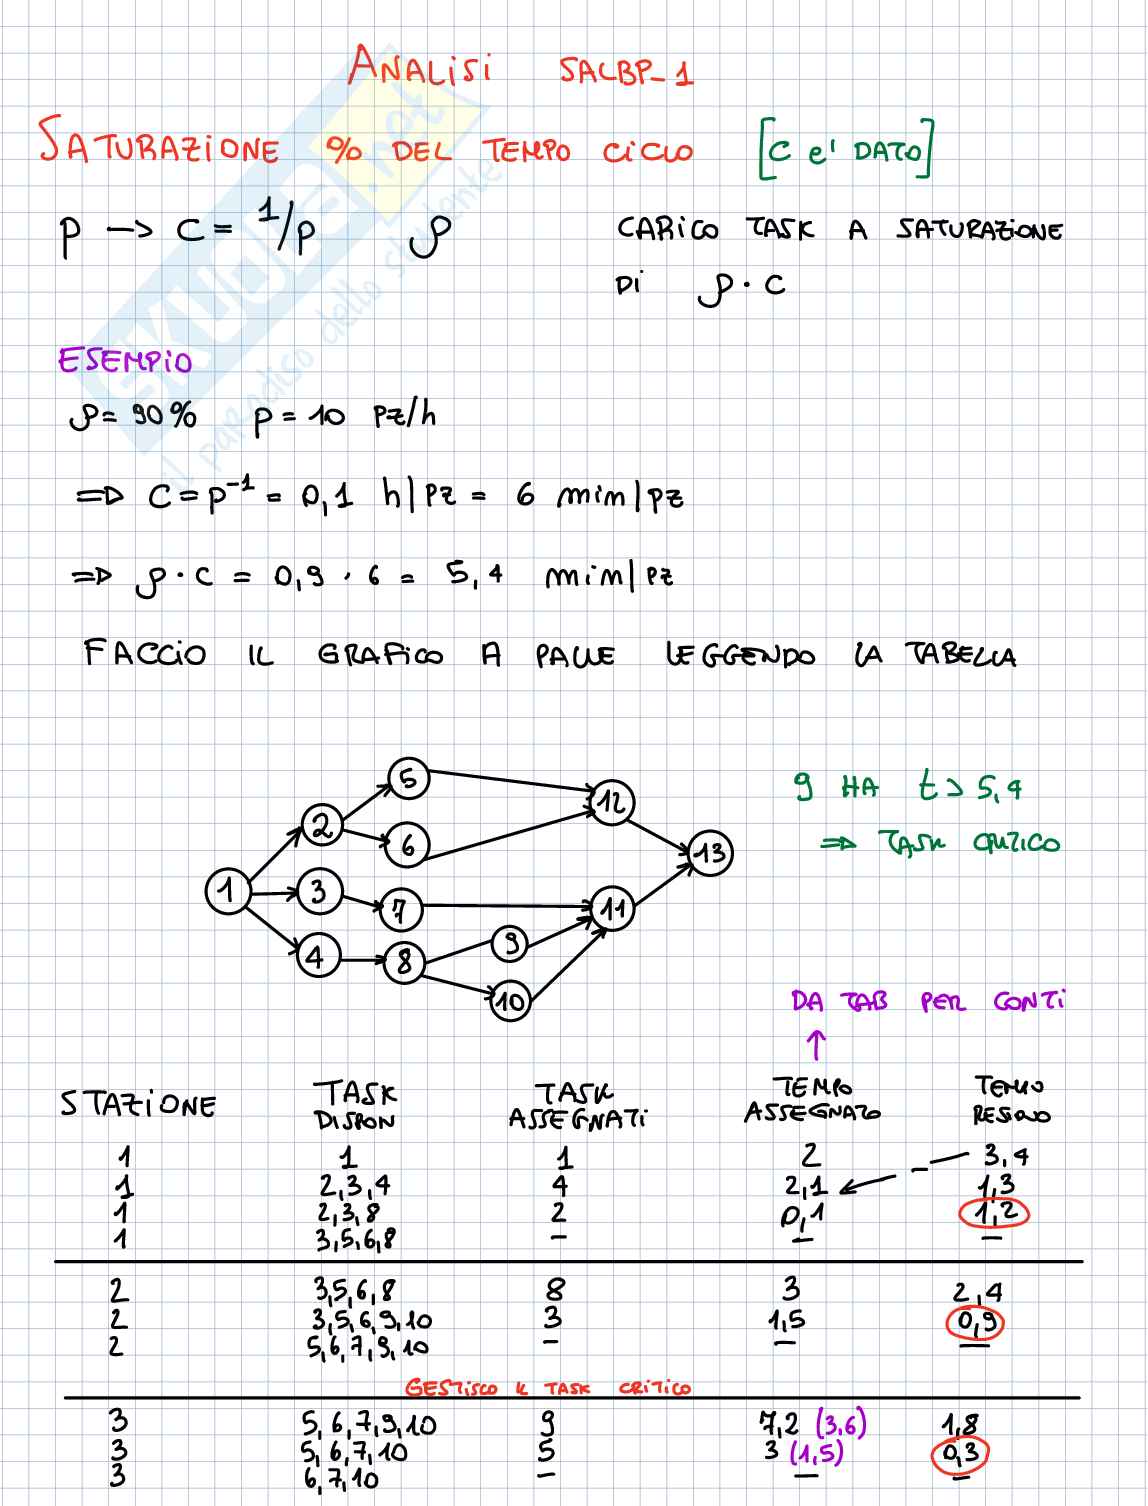 ANALISI SALBP-1
SATURAZIONE % DEL TEMPO CICLO [C e' DATO]
p → C = 1/p ρ CARICO TASK A SATURAZIONE
DI ρ · C
ESEMPIO
ρ = 90% p = 10 pz/h
⇒ C = p⁻¹ = 0,1 h|pz = 6 min|pz
⇒ ρ · C = 0,9 · 6 = 5,4 min|pz
FACCIO IL GRAFICO A PALLE LEGGENDO LA TABELLA
5
12
9 HA t > 5,4
2
6
⇒ TASK CRITICO
13
1
3
7
11
4
8
9
10
DA TAB PER CONTI
↑
STAZIONE TASK DISPON TASK ASSEGNATI TEMPO ASSEGNATO TEMPO RESIDUO
1 1 1 2 3,4
1 2,3,4 4 2,1 ← - 1,3
1 2,3,8 2 0,1 1,2
1 3,5,6,8 - - -
2 3,5,6,8 8 3 2,4
2 3,5,6,9,10 3 1,5 0,9
2 5,6,7,9,10 - - -
GESTISCO IL TASK CRITICO
3 5,6,7,9,10 9 7,2 (3,6) 1,8
3 5,6,7,10 5 3 (1,5) 0,3
3 6,7,10 - - -
SKUOLA.net
il paradiso dello studente